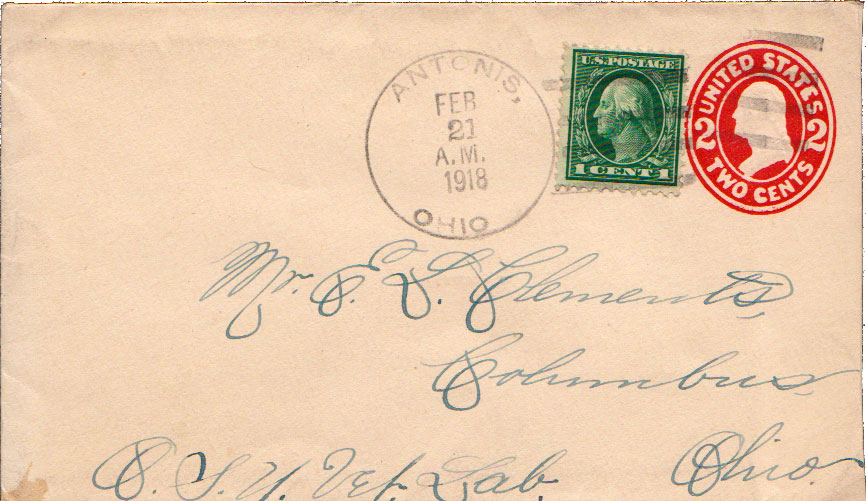 ANTONIS,
FEB
21
A.M.
1918
OHIO
U.S. POSTAGE
1 CENT 1
UNITED STATES
2 2
TWO CENTS
Mr. E. S. Clements,
Columbus
Ohio.
O. S. U. Vet. Lab.